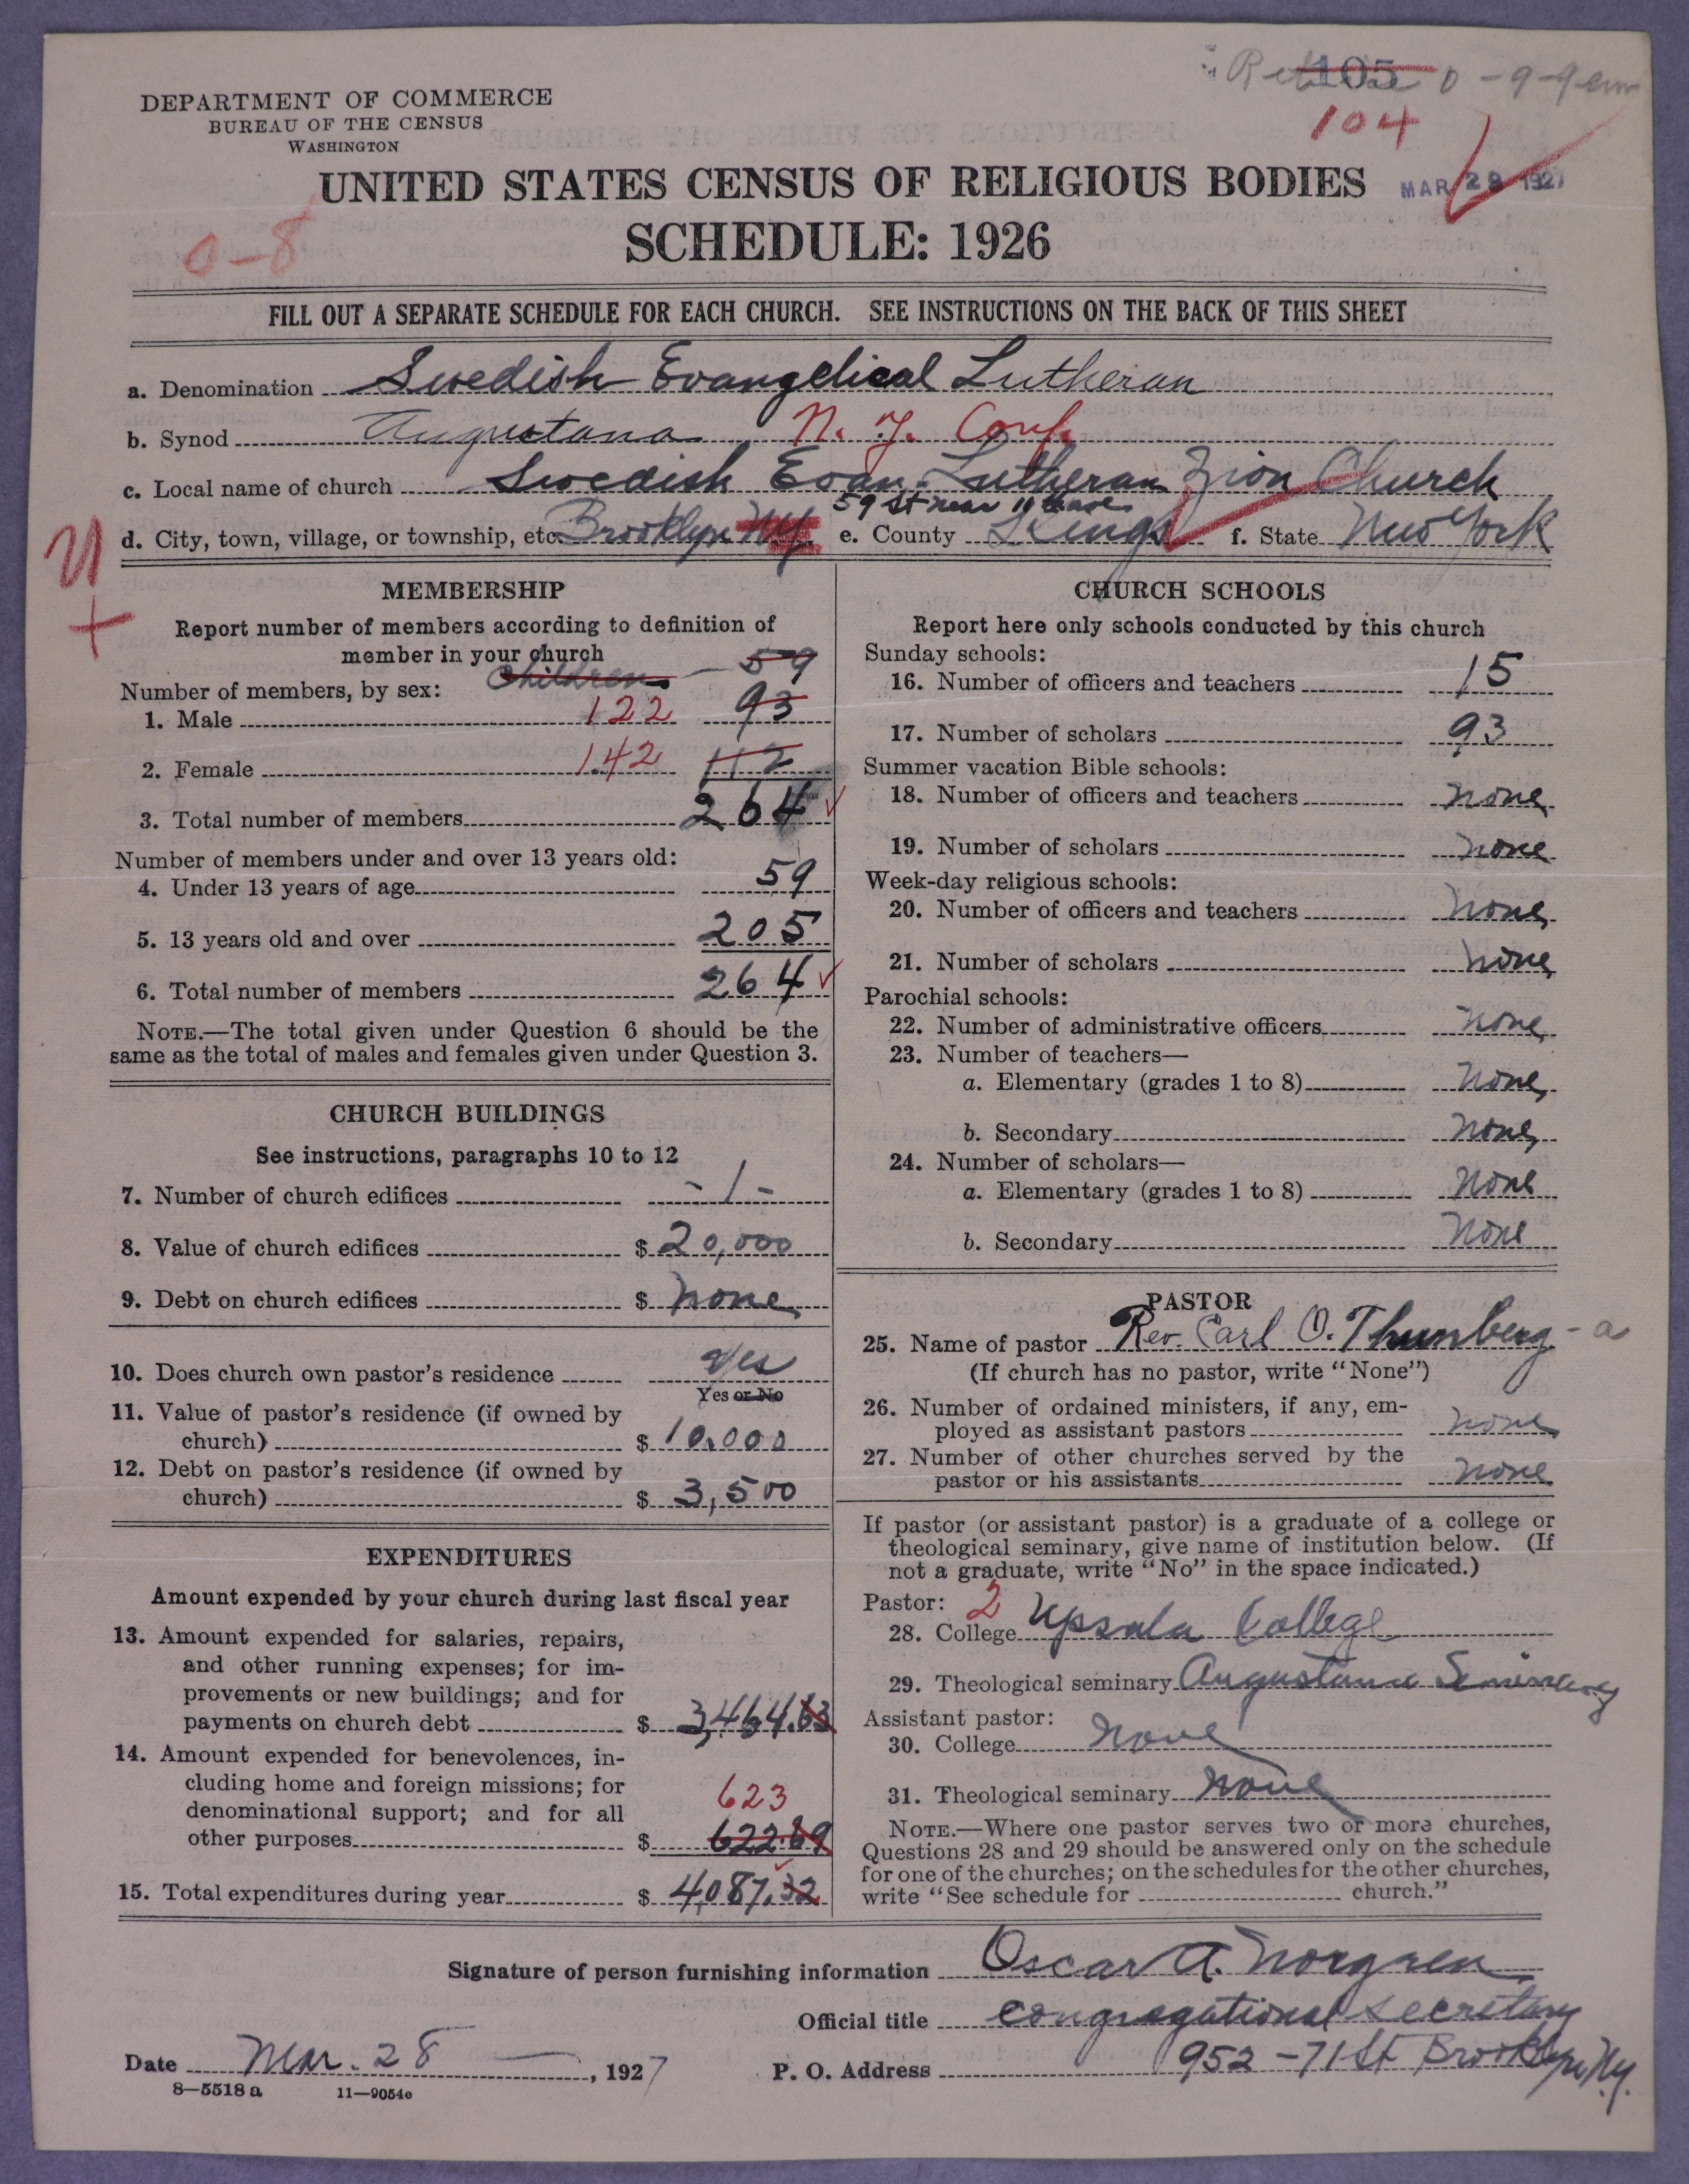 105
104
DEPARTMENT OF COMMERCE
BUREAU OF THE CENSUS
WASHINGTON
UNITED STATES CENSUS OF RELIGIOUS BODIES
MAR 29 1927
SCHEDULE: 1926
0-8
FILL OUT A SEPARATE SCHEDULE FOR EACH CHURCH. SEE INSTRUCTIONS ON THE BACK OF THIS SHEET
a. Denomination Swedish Evangelical Lutheran
b. Synod Augustana N. Y. Conf.
c. Local name of church Swedish Evan. Lutheran Zion Church
59 St near 11 Ave
d. City, town, village, or township, etc. Brooklyn N.Y. e. County Kings f. State New York
MEMBERSHIP
Report number of members according to definition of
member in your church
Children - 59
Number of members, by sex:
1. Male 122 93
2. Female 142 112
3. Total number of members 264
Number of members under and over 13 years old:
4. Under 13 years of age 59
5. 13 years old and over 205
6. Total number of members 264
NOTE.—The total given under Question 6 should be the
same as the total of males and females given under Question 3.
CHURCH BUILDINGS
See instructions, paragraphs 10 to 12
7. Number of church edifices - 1 -
8. Value of church edifices $ 20,000
9. Debt on church edifices $ none
10. Does church own pastor's residence Yes
Yes or No
11. Value of pastor's residence (if owned by
church) $ 10.000
12. Debt on pastor's residence (if owned by
church) $ 3,500
EXPENDITURES
Amount expended by your church during last fiscal year
13. Amount expended for salaries, repairs,
and other running expenses; for im-
provements or new buildings; and for
payments on church debt $ 3,464.63
14. Amount expended for benevolences, in-
cluding home and foreign missions; for
denominational support; and for all
623
other purposes $ 622.69
15. Total expenditures during year $ 4,087.32
CHURCH SCHOOLS
Report here only schools conducted by this church
Sunday schools:
16. Number of officers and teachers 15
17. Number of scholars 93
Summer vacation Bible schools:
18. Number of officers and teachers none
19. Number of scholars none
Week-day religious schools:
20. Number of officers and teachers none
21. Number of scholars none
Parochial schools:
22. Number of administrative officers none
23. Number of teachers—
a. Elementary (grades 1 to 8) none
b. Secondary none
24. Number of scholars—
a. Elementary (grades 1 to 8) none
b. Secondary none
PASTOR
25. Name of pastor Rev. Carl O. Thunberg - a
(If church has no pastor, write "None")
26. Number of ordained ministers, if any, em-
ployed as assistant pastors none
27. Number of other churches served by the
pastor or his assistants none
If pastor (or assistant pastor) is a graduate of a college or
theological seminary, give name of institution below. (If
not a graduate, write "No" in the space indicated.)
Pastor: 2
28. College Upsala College
29. Theological seminary Augustana Seminary
Assistant pastor:
30. College none
31. Theological seminary none
NOTE.—Where one pastor serves two or more churches,
Questions 28 and 29 should be answered only on the schedule
for one of the churches; on the schedules for the other churches,
write "See schedule for church."
Signature of person furnishing information Oscar A. Norgren
Official title congregational secretary
Date Mar. 28, 1927 P. O. Address 952 - 71 St Brooklyn N.Y.
8—5518a 11—9054c